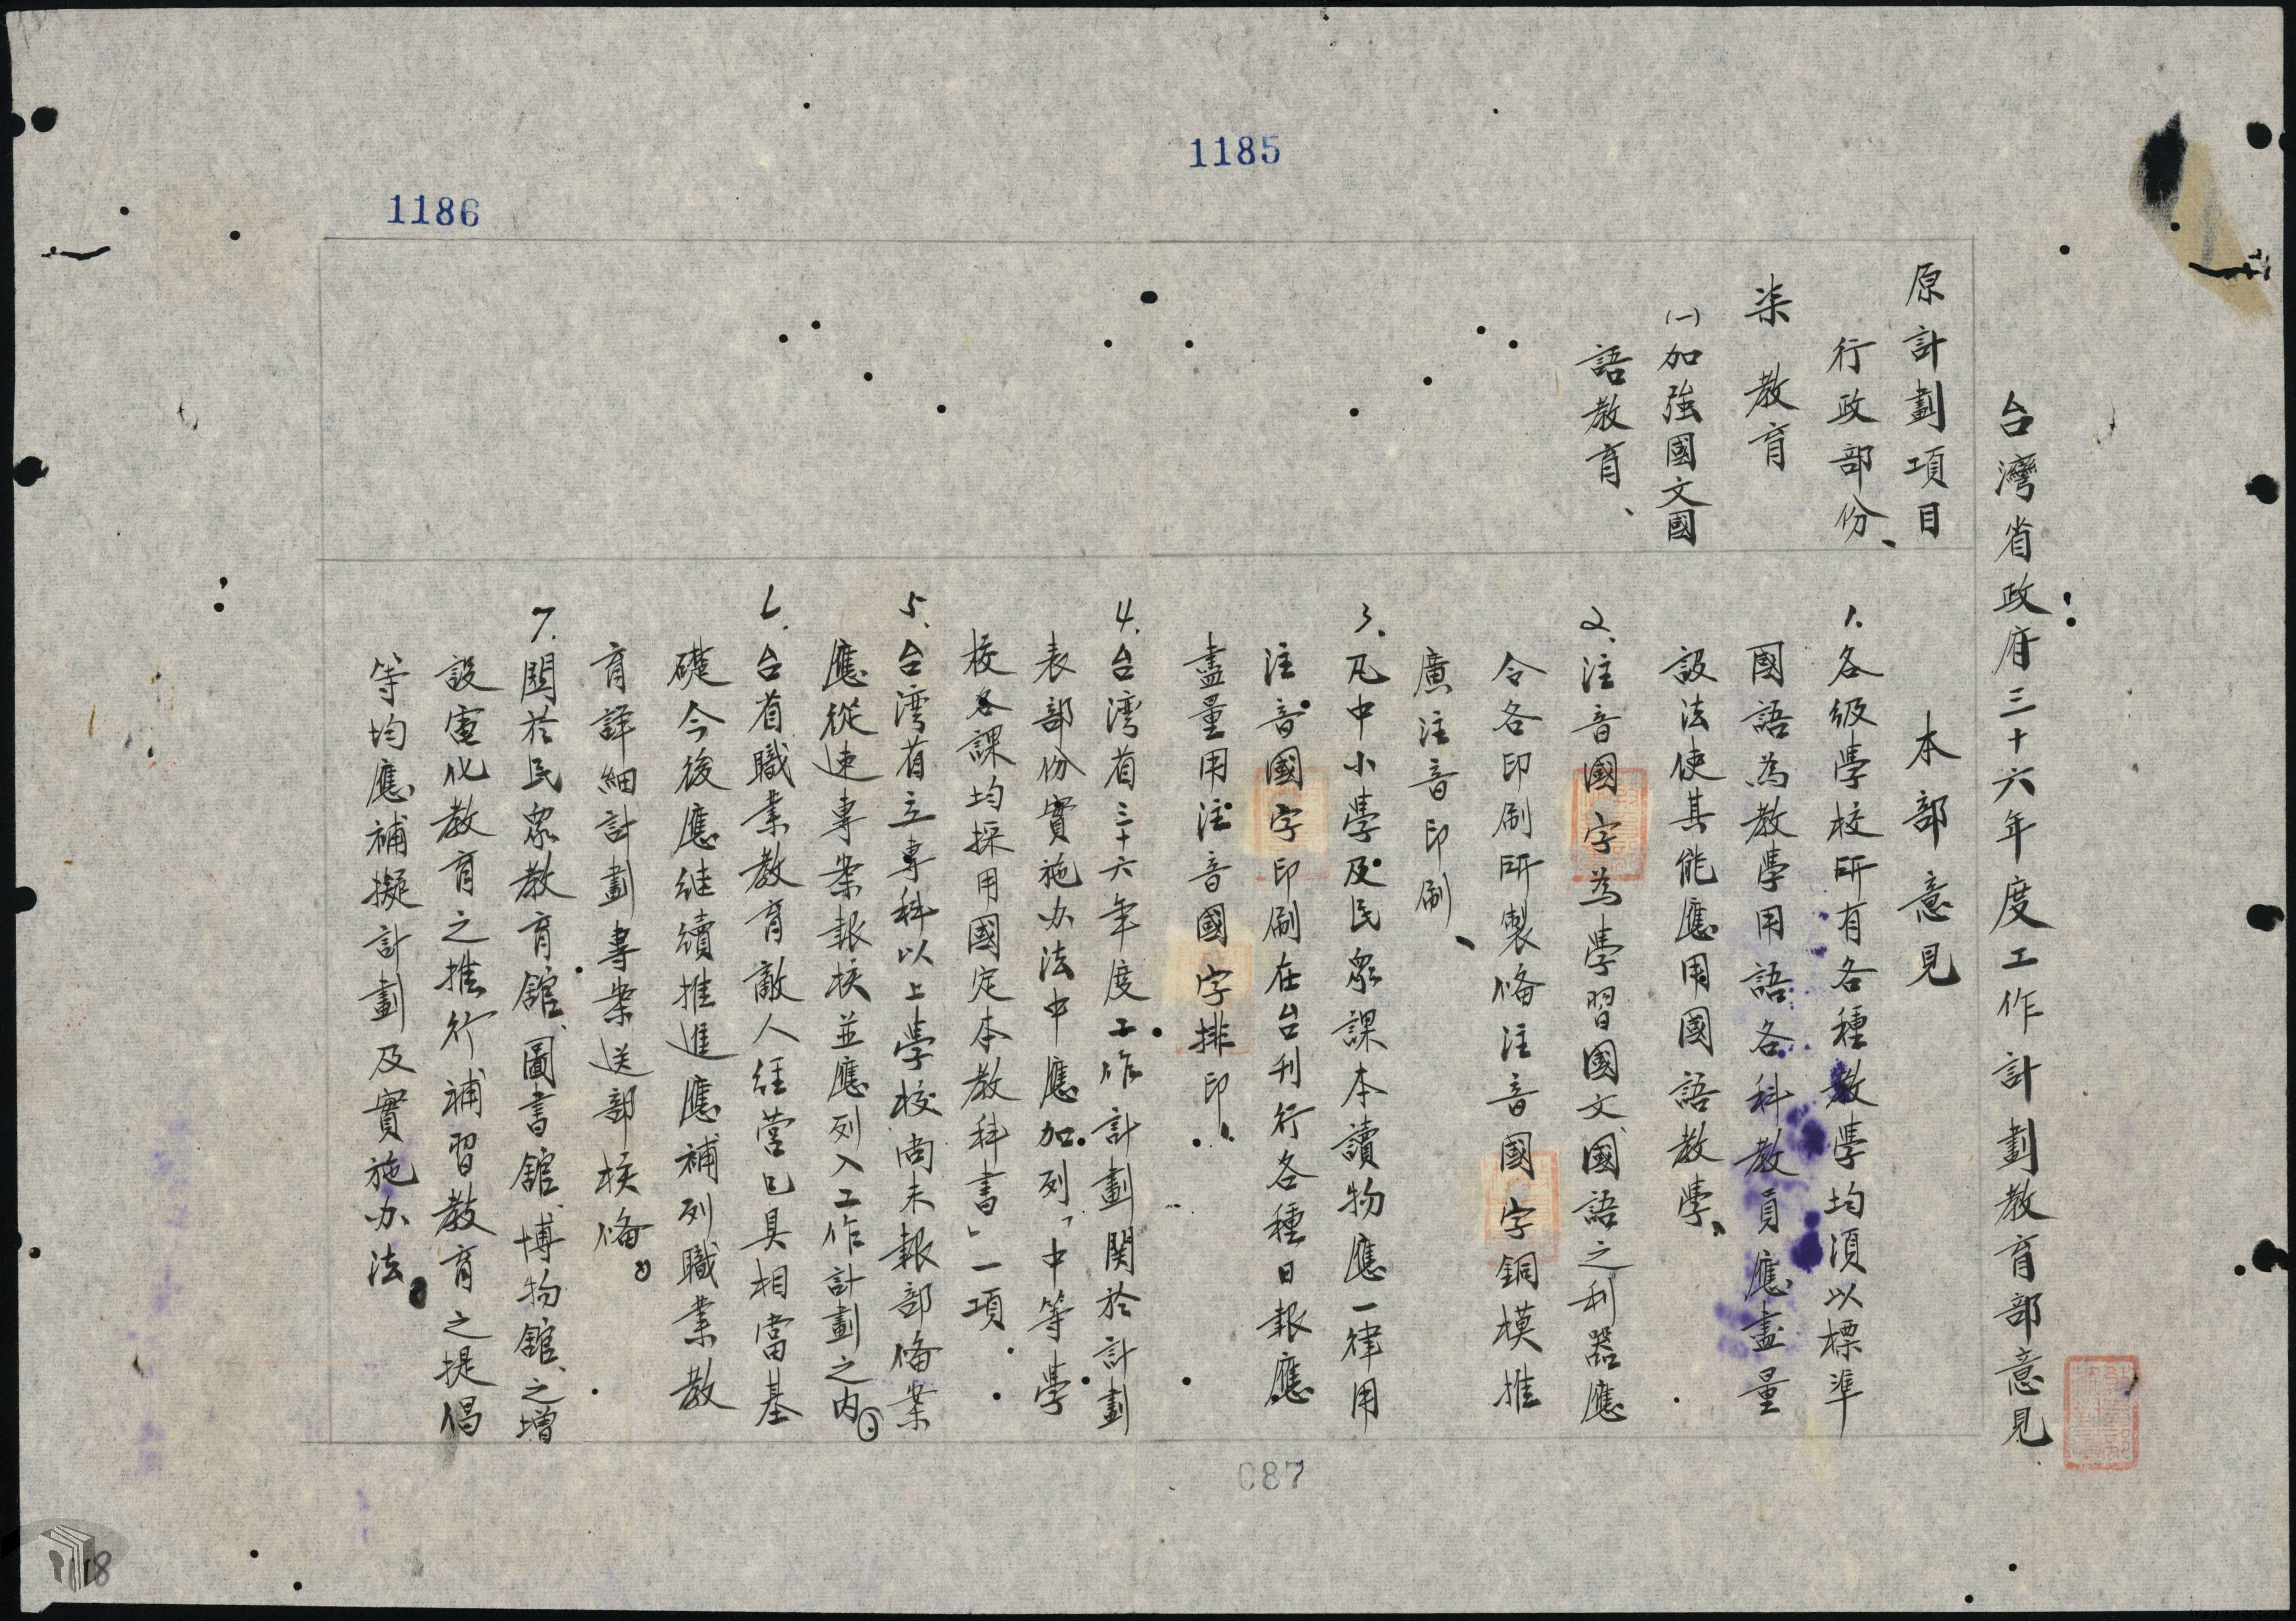 台灣省政府三十六年度工作計劃教育部意見
原計劃項目
本部意見
行政部份、
柒 教育
(一)加強國文國
語教育、
1.各級學校所有各種教學均須以標準
國語為教學用語各科教員應盡量
設法使其能應用國語教學、
2.注音國字為學習國文國語之利器應
令各印刷所製俻注音國字銅模推
廣注音印刷、
3.凡中小學及民眾課本讀物應一律用
注音國字印刷在台刊行各種日報應
盡量用注音國字排印、
4.台湾省三十六年度工作計劃関於計劃
表部份實施办法中應加列「中等學
校各課均採用國定本教科書」一項
5.台湾省立專科以上學校尚未報部俻案
應從速專案報核並應列入工作計劃之内。
6.台省職業教育敵人経营已具相當基
礎今後應继續推進應補列職業教
育詳細計劃專案送部核俻。
7.関於民眾教育舘、圖書舘、博物舘、之增
設電化教育之推行補習教育之提倡
等均應補擬計劃及實施办法。
1185
1186
087